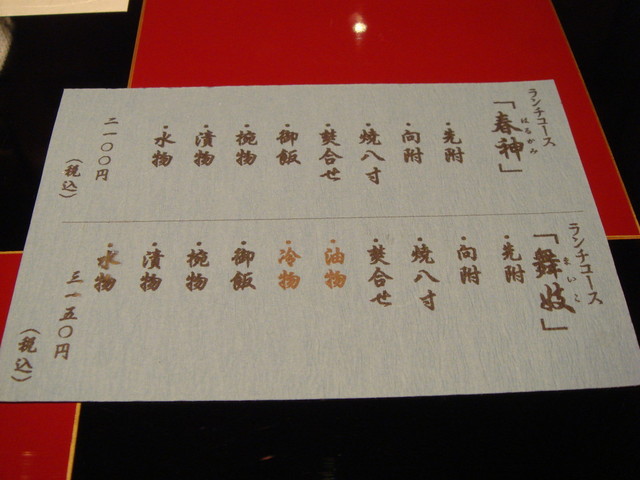 ランチコース
「春神」
はるかみ
・先附
・向附
・焼八寸
・焚合せ
・御飯
・椀物
・漬物
・水物
二一〇〇円
(税込)
ランチコース
「舞妓」
まいこ
・先附
・向附
・焼八寸
・焚合せ
・油物
・冷物
・御飯
・椀物
・漬物
・水物
三一五〇円
(税込)